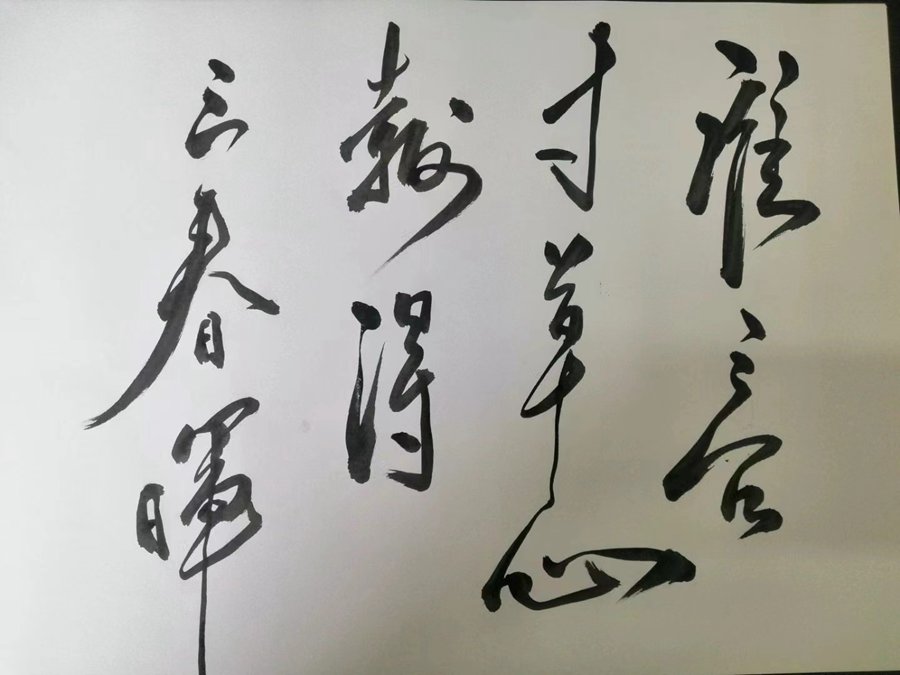 谁言
寸草心
報得
三春暉